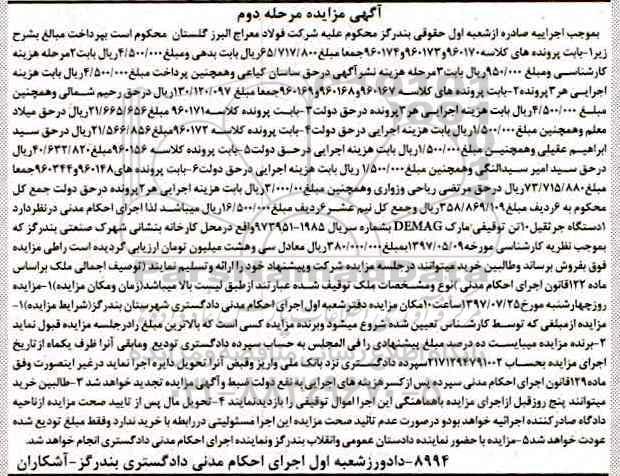 آگهی مزایده مرحله دوم
بموجب اجراییه صادره ازشعبه اول حقوقی بندرگز محکوم علیه شرکت فولاد معراج البرز گلستان محکوم است بپرداخت مبالغ بشرح
زیر۱-بابت پرونده های کلاسه۹۶۰۱۷۰و۹۶۰۱۷۳و۹۶۰۱۷۴جمعا مبلغ۶۵/۷۱۷/۸۰۰ریال بابت بدهی ومبلغ۴/۵۰۰/۰۰۰ریال بابت۲مرحله هزینه
کارشناسی ومبلغ ۹۵۰/۰۰۰ریال بابت۳مرحله هزینه نشرآگهی درحق ساسان کیاعی وهمچنین پرداخت مبلغ۴/۵۰۰/۰۰۰ریال بابت هزینه
اجرایی هر۳پرونده۲-بابت پرونده های کلاسه ۹۶۰۱۶۷و۹۶۰۱۶۸و۹۶۰۱۶۹جمعا مبلغ ۱۳۰/۱۲۰/۰۹۷ریال درحق رحیم شمالی وهمچنین
مبلغ ۴/۵۰۰/۰۰۰ریال بابت هزینه اجرایی هر۳پرونده درحق دولت۳-بابت پرونده کلاسه۹۶۰۱۷۱ مبلغ۲۱/۶۶۵/۶۵۶ریال درحق میلاد
معلم وهمچنین مبلغ۱/۵۰۰/۰۰۰ریال بابت هزینه اجرایی درحق دولت۴-بابت پرونده کلاسه ۹۶۰۱۷۲مبلغ ۲۱/۵۶۶/۸۵۶ریال درحق سید
ابراهیم عقیلی وهمچنین مبلغ۱/۵۰۰/۰۰۰ریال بابت هزینه اجرایی درحق دولت۵-بابت پرونده کلاسه ۹۶۰۱۵۶ مبلغ۴۰/۶۳۲/۸۲۰ریال
درحق سید امیر سیدالنگی وهمچنین مبلغ ۱/۵۰۰/۰۰۰ ریال بابت هزینه اجرایی درحق دولت۶-بابت پرونده های۹۶۰۱۴۸و۹۶۰۳۴۴جمعا
مبلغ۷۳/۷۱۵/۸۸۰ریال درحق مرتضی ریاحی وزواری وهمچنین مبلغ۳/۰۰۰/۰۰۰ریال بابت هزینه اجرایی هر۲پرونده درحق دولت جمع کل
محکوم به ۶ردیف مبلغ ۳۵۸/۸۶۹/۱۰۹ریال وجمع کل نیم عشر۶ردیف مبلغ۱۶/۵۰۰/۰۰۰ریال میباشد لذا اجرای احکام مدنی درنظردارد
۱دستگاه جرثقیل۱۰تن توقیفی مارک DEMAG بشماره سریال ۱۹۸۵-۹۷۳۹۵۱واقع درمحل کارخانه بنشانی شهرک صنعتی بندرگز که
بموجب نظریه کارشناسی مورخه۱۳۹۷/۰۵/۰۹بمبلغ۳۸۰/۰۰۰/۰۰۰ریال معادل سی وهشت میلیون تومان ارزیابی گردیده است راطی مزایده
فوق بفروش برساند وطالبین خرید میتوانند درجلسه مزایده شرکت وپیشنهاد خود را ارائه وتسلیم نمایند (توصیف اجمالی ملک براساس
ماده ۲۲اقانون اجرای احکام مدنی )نوع ومشخصات ملک توقیف شده عبارتند ازطبق لیست بالا میباشد(زمان ومکان مزایده)۱-مزایده
روزچهارشنبه مورخ۱۳۹۷/۰۷/۲۵ساعت۱۰مکان مزایده دفترشعبه اول اجرای احکام مدنی دادگستری شهرستان بندرگز(شرایط مزایده)۱-
مزایده ازمبلغی که توسط کارشناس تعیین شده شروع میشود وبرنده مزایده کسی است که بالاترین مبلغ رادرجلسه مزایده قبول نماید
۲-برنده مزایده میبایست ده درصد مبلغ پیشنهادی را فی المجلس به حساب سپرده دادگستری تودیع ومابقی آنرا ظرف یکماه ازتاریخ
اجرای مزایده بحساب ۲۱۷۱۲۹۴۷۹۱۰۰۲سپرده دادگستری نزد بانک ملی واریز وقبض آنرا تحویل دایره اجرا نماید درغیر اینصورت وفق
ماده۱۲۹قانون اجرای احکام مدنی سپرده پس ازکسرهزینه های اجرایی به نفع دولت ضبط وآگهی مزایده تجدید خواهد شد ۳-طالبین خرید
میتوانند پنج روزقبل ازاجرای مزایده باهماهنگی این اجرا اموال توقیفی را بازدیدنمایند ۴-تحویل مال پس از تایید صحت مزایده ازناحیه
دادگاه صادرکننده اجرائیه خواهد بودو درصورت عدم تائید صحت مزایده این اجرا مسئولیتی دررابطه با خرید ندارد وفقط مبلغ تودیع شده
عودت خواهد شد۵-مزایده با حضور نماینده دادستان عمومی وانقلاب بندرگز ونماینده اجرای احکام مدنی دادگستری انجام خواهد شد.
۸۹۹۴-دادورزشعبه اول اجرای احکام مدنی دادگستری بندرگز-آشکاران